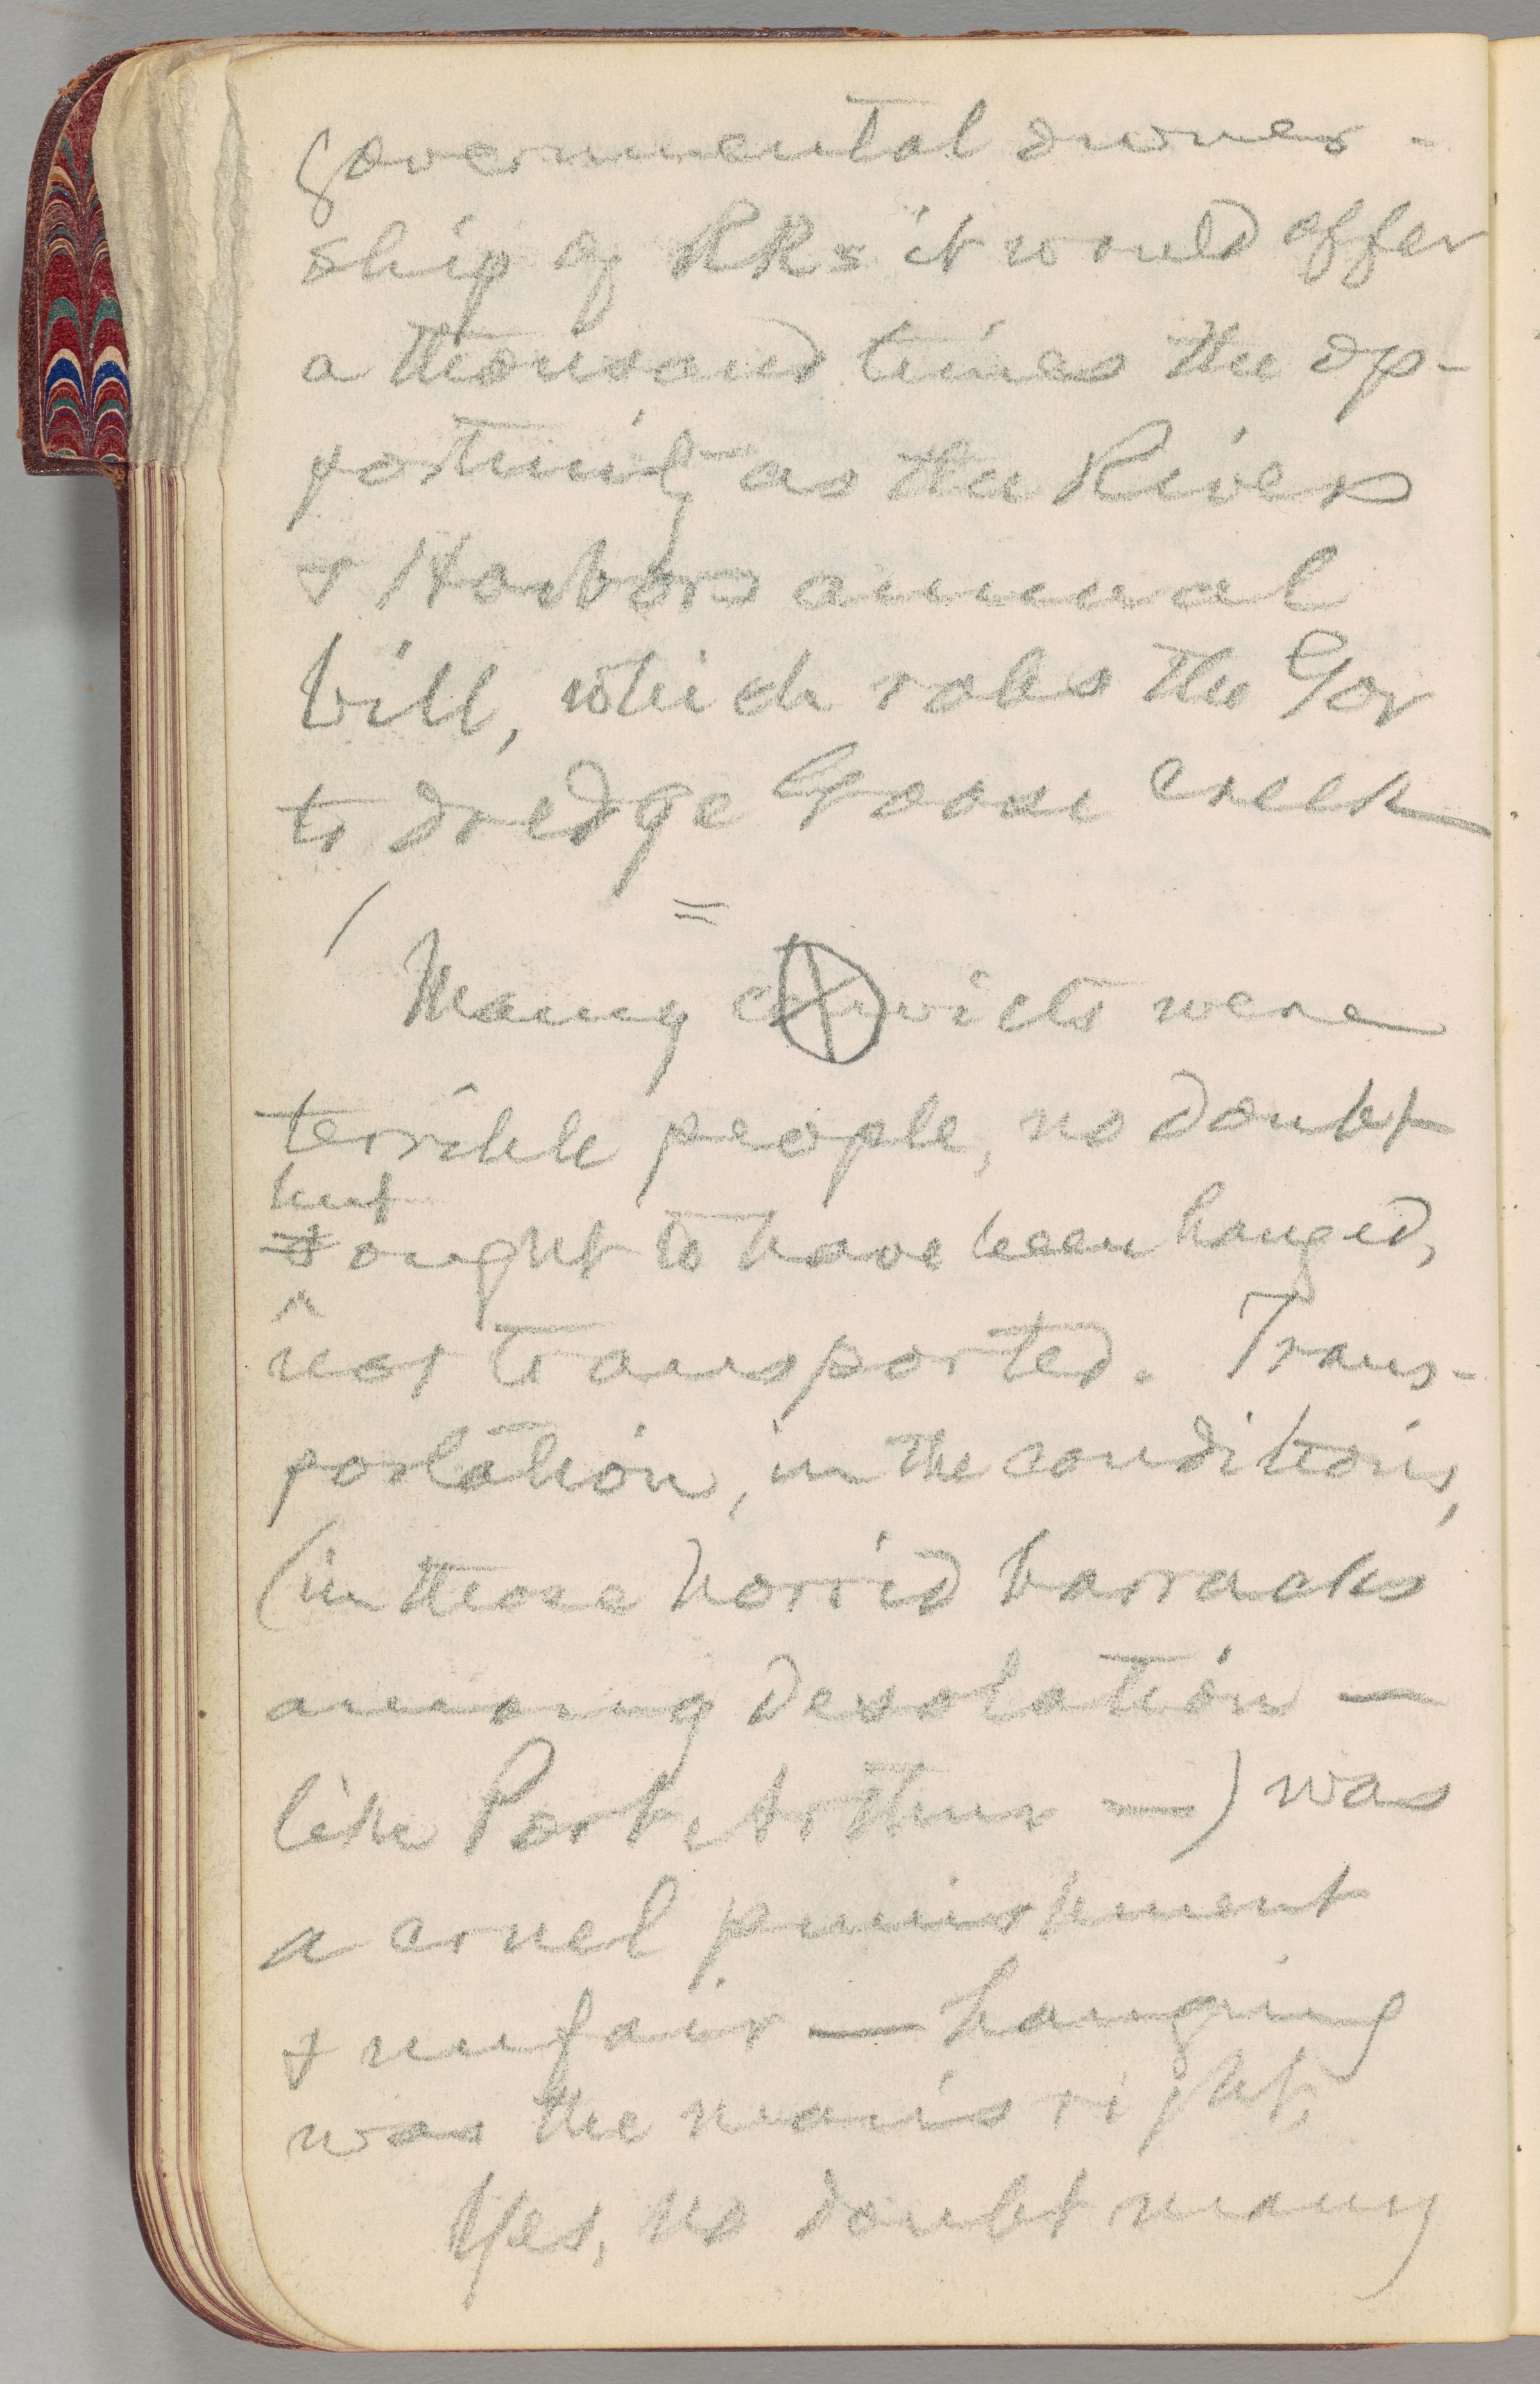 governmental owner-
ship of RRs it would offer
a thousand times the op-
portunity as the Rivers
& Harbors annual
bill, which robs the Gov
to dredge Goose Creek
=
Many convicts were
terrible people, no doubt
but
& ought to have been hanged,
^
not transported. Trans-
portation, in the conditions,
(in those horrid barracks
among desolation —
like Port Arthur —) was
a cruel punishment
& unfair — hanging
was the man's right.
Yes, no doubt many